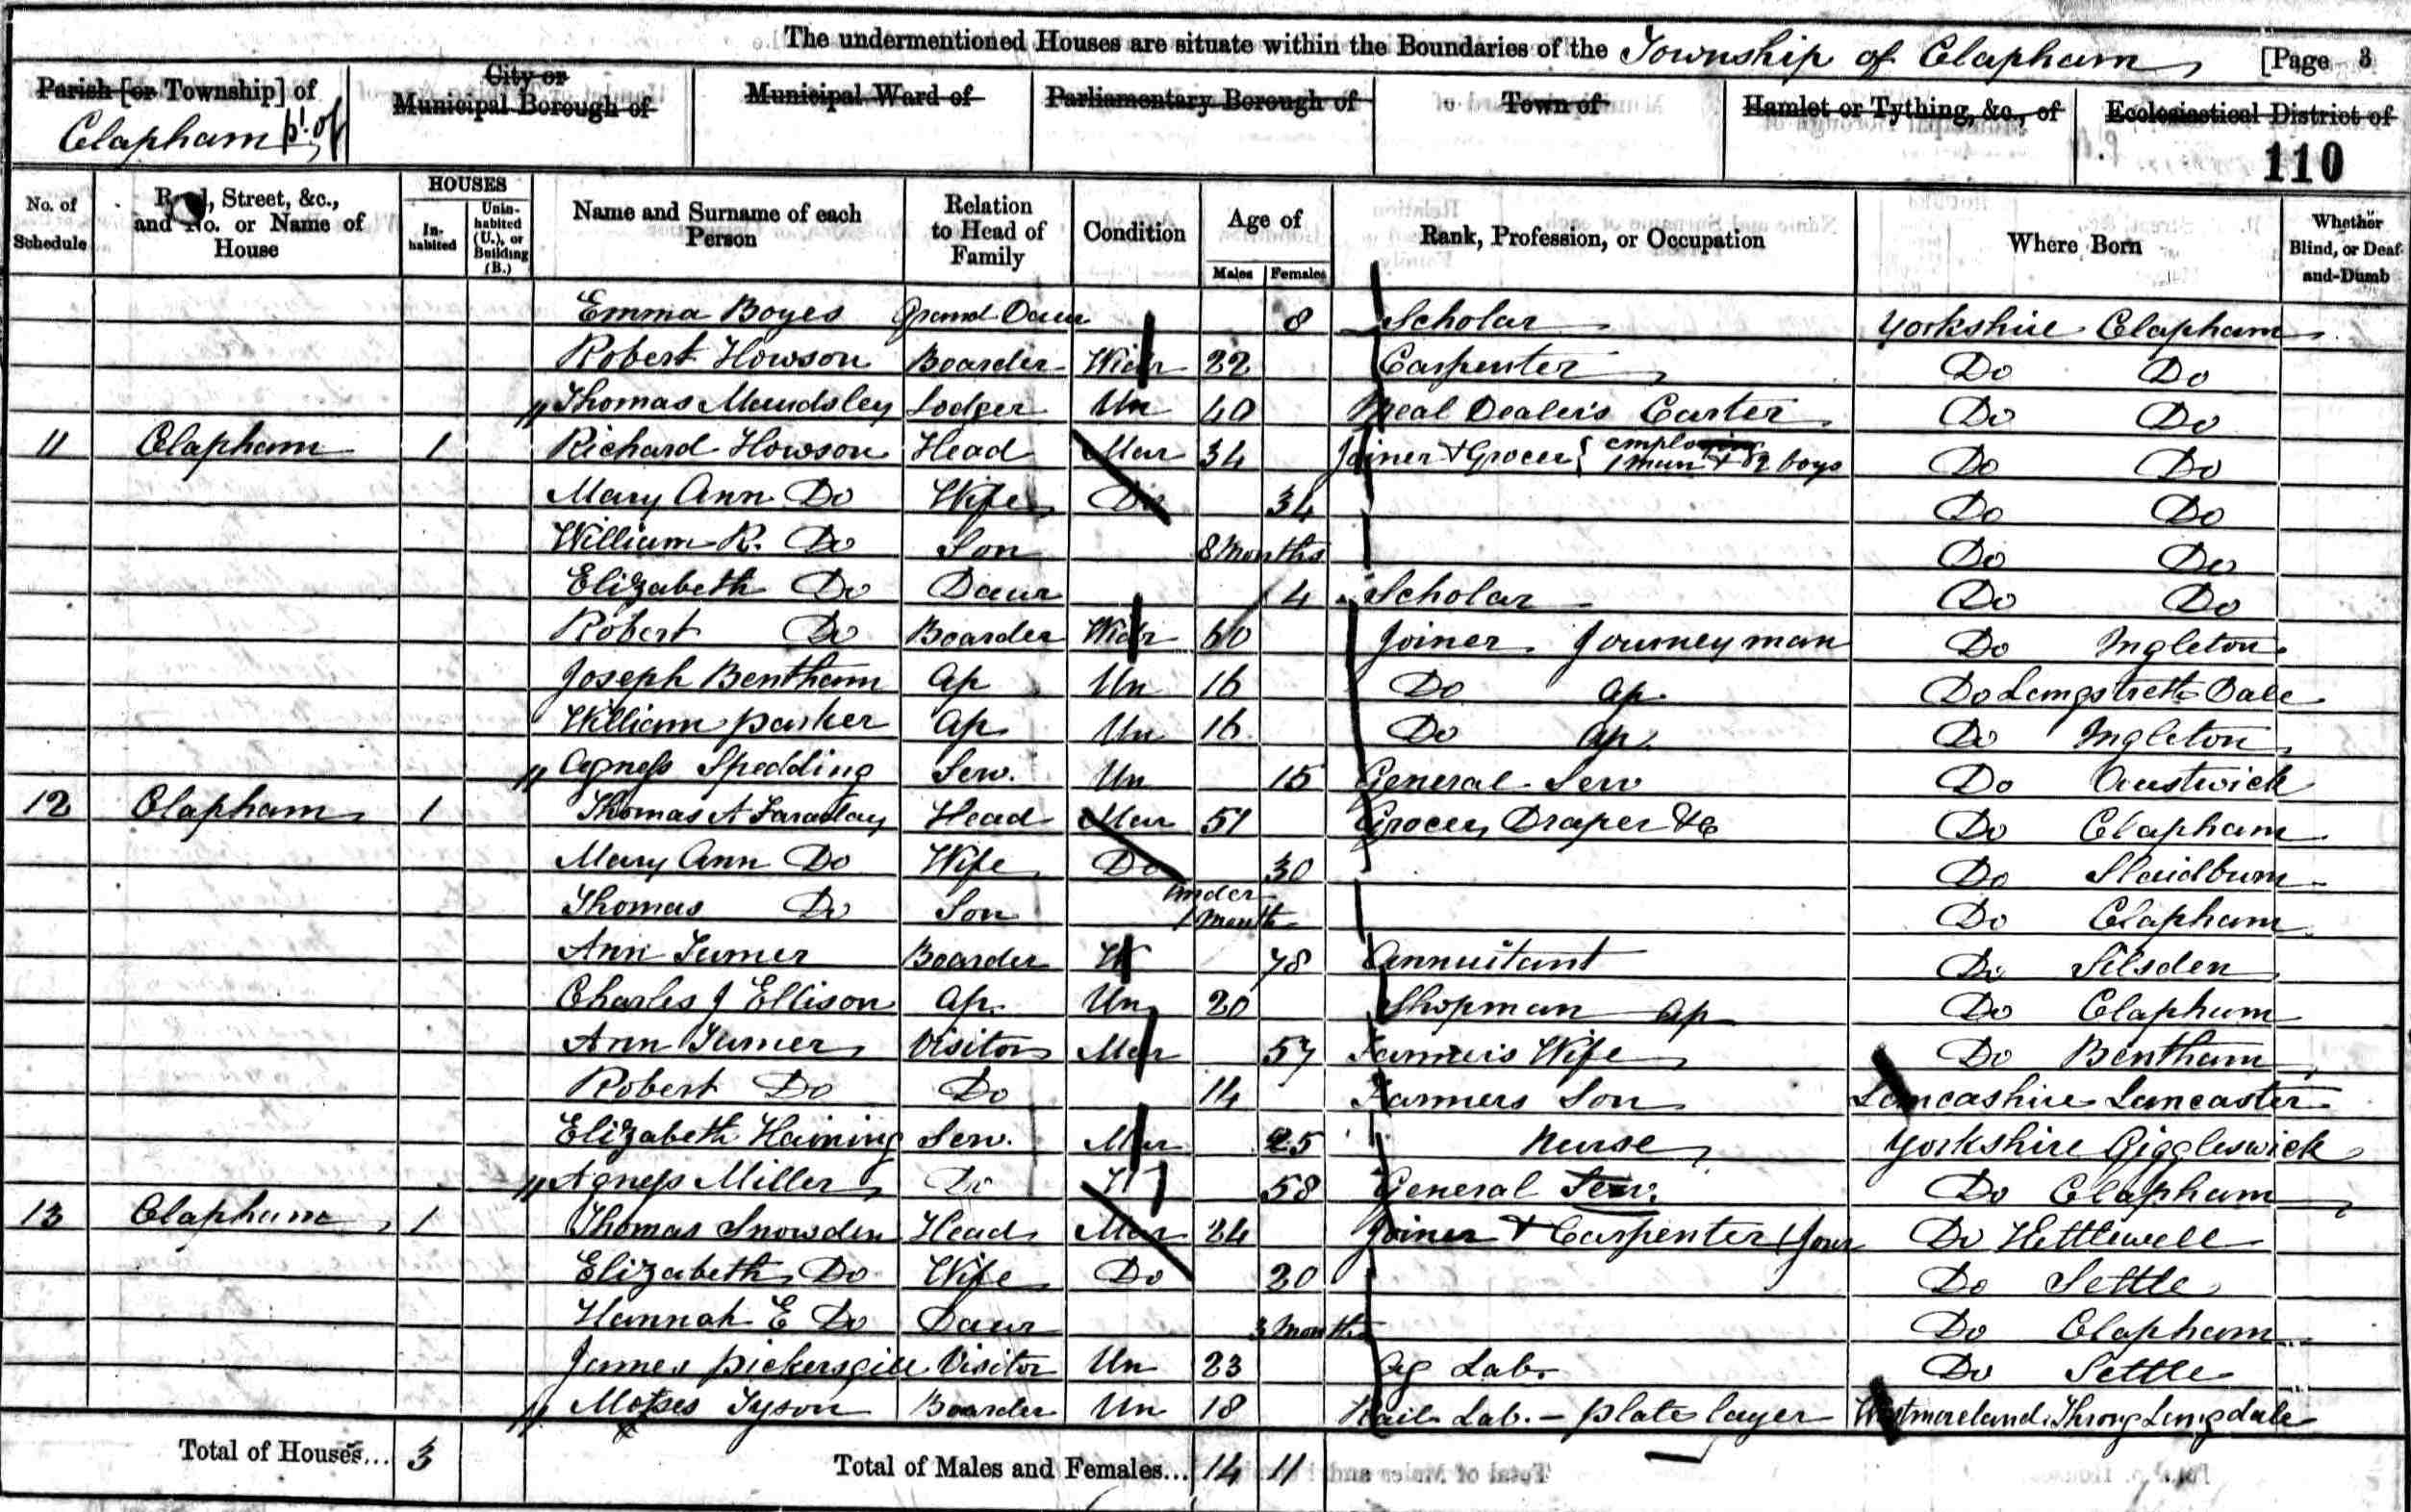 The undermentioned Houses are situate within the Boundaries of the Township of Clapham [Page 3
Parish [or Township] of Clapham pt. of
City or Municipal Borough of
Municipal Ward of
Parliamentary Borough of
Town of
Hamlet or Tything, &c., of
Ecclesiastical District of
110
No. of Schedule
Road, Street, &c., and No. or Name of House
HOUSES
In-habited
Unin-habited (U.), or Building (B.)
Name and Surname of each Person
Relation to Head of Family
Condition
Age of
Males Females
Rank, Profession, or Occupation
Where Born
Whether Blind, or Deaf-and-Dumb
Emma Boyes Grand Daur 8 Scholar Yorkshire Clapham
Robert Howson Boarder Widr 22 Carpenter Do Do
Thomas Maudsley Lodger Un 40 Meal Dealer's Carter Do Do
11 Clapham 1 Richard Howson Head Mar 34 Joiner & Grocer { employing 1 man & 2 boys Do Do
Mary Ann Do Wife Do 34 Do Do
William R. Do Son 8 Months Do Do
Elizabeth Do Daur 4 Scholar Do Do
Robert Do Boarder Widr 60 Joiner Journeyman Do Ingleton
Joseph Bentham Ap Un 16 Do Ap. Do Langstreth Dale
William Parker Ap Un 16 Do Ap. Do Ingleton
Agness Spedding Serv. Un 15 General Serv Do Austwick
12 Clapham 1 Thomas A Faraday Head Mar 51 Grocer, Draper &c Do Clapham
Mary Ann Do Wife Do 30 Do Slaidburn
Thomas Do Son under 1 Month Do Clapham
Ann Turner Boarder W 78 Annuitant Do Silsden
Charles J Ellison Ap. Un 20 Shopman Ap Do Clapham
Ann Turner Visitor Mar 57 Farmer's Wife Do Bentham
Robert Do Do 14 Farmers Son Lancashire Lancaster
Elizabeth Haining Serv. Mar 25 Nurse Yorkshire Giggleswick
Agness Miller Do 58 General Serv. Do Clapham
13 Clapham 1 Thomas Snowden Head Mar 24 Joiner & Carpenter (Jour Do Kettlewell
Elizabeth Do Wife Do 20 Do Settle
Hannah E Do Daur 3 Months Do Clapham
James Pickersgill Visitor Un 23 Ag Lab. Do Settle
Moses Tyson Boarder Un 18 Rail Lab. - plate layer Westmoreland Throng Langdale
Total of Houses... 3 Total of Males and Females... 14 11